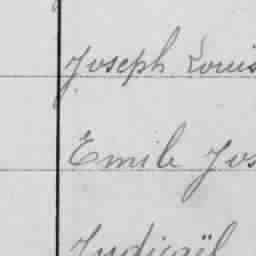 Joseph Louis
Emile Jos
Judicaël